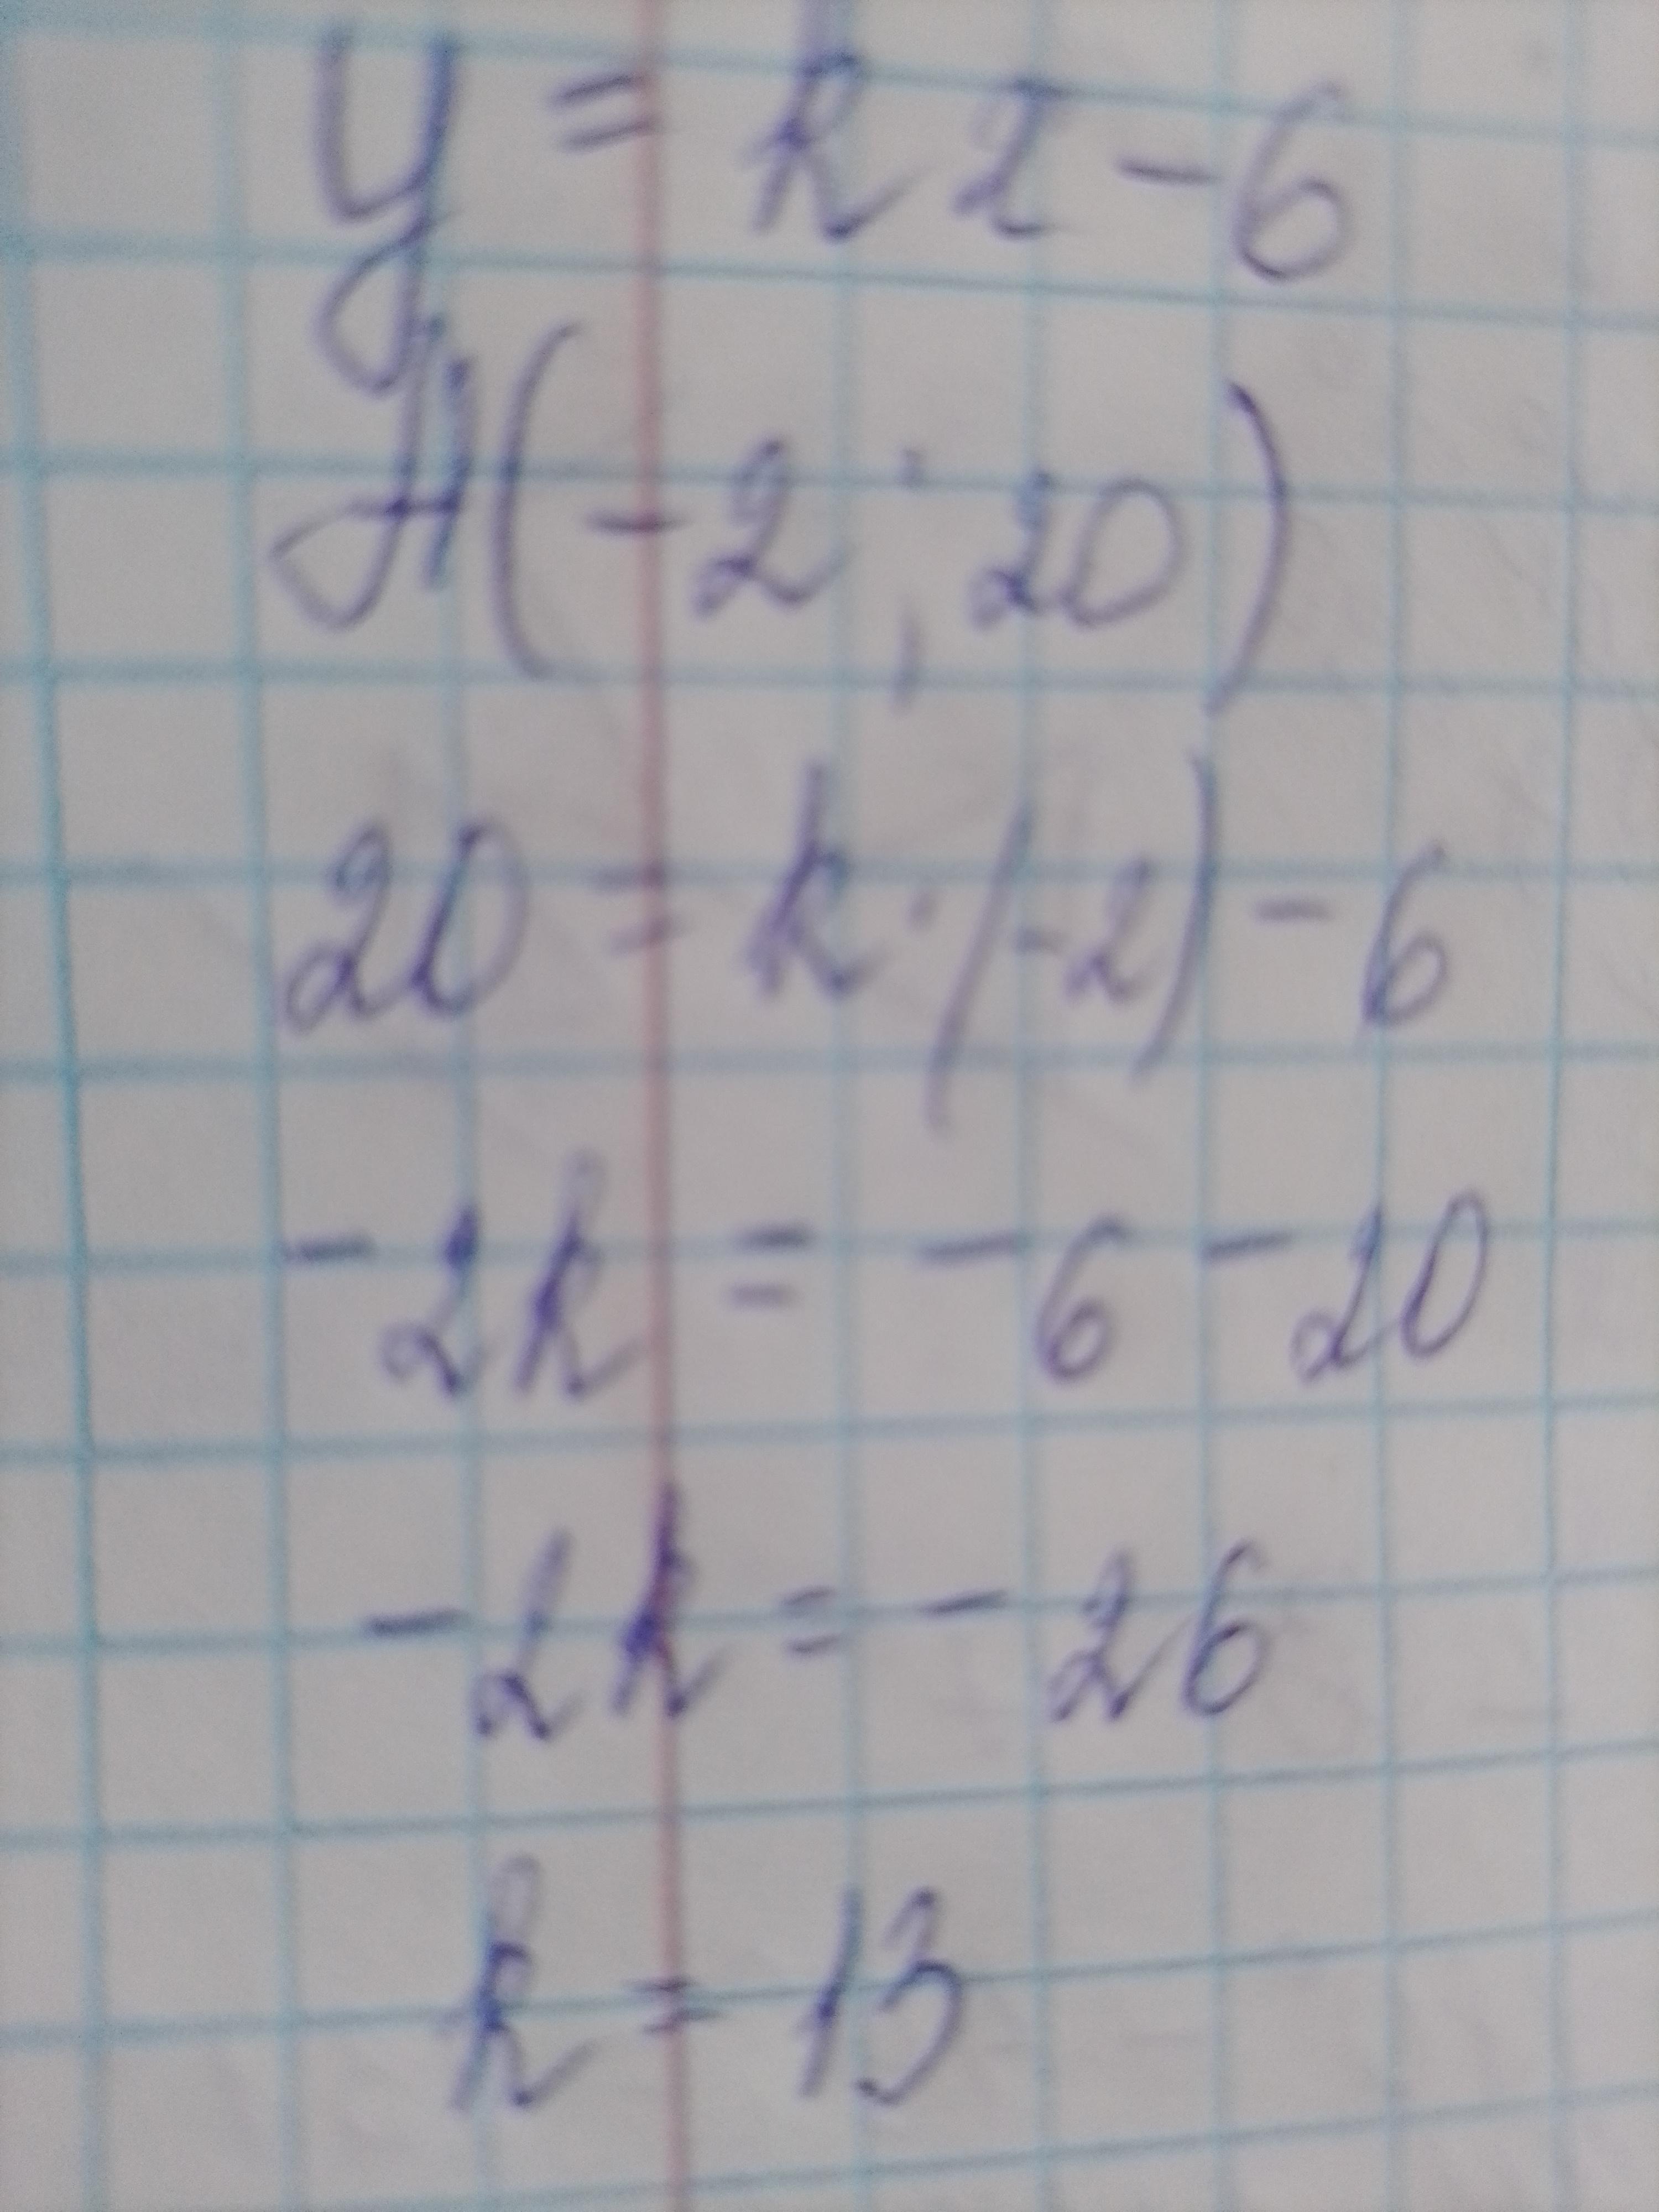 y = kx - 6
A(-2; 20)
20 = k·(-2) - 6
-2k = -6 - 20
-2k = -26
k = 13